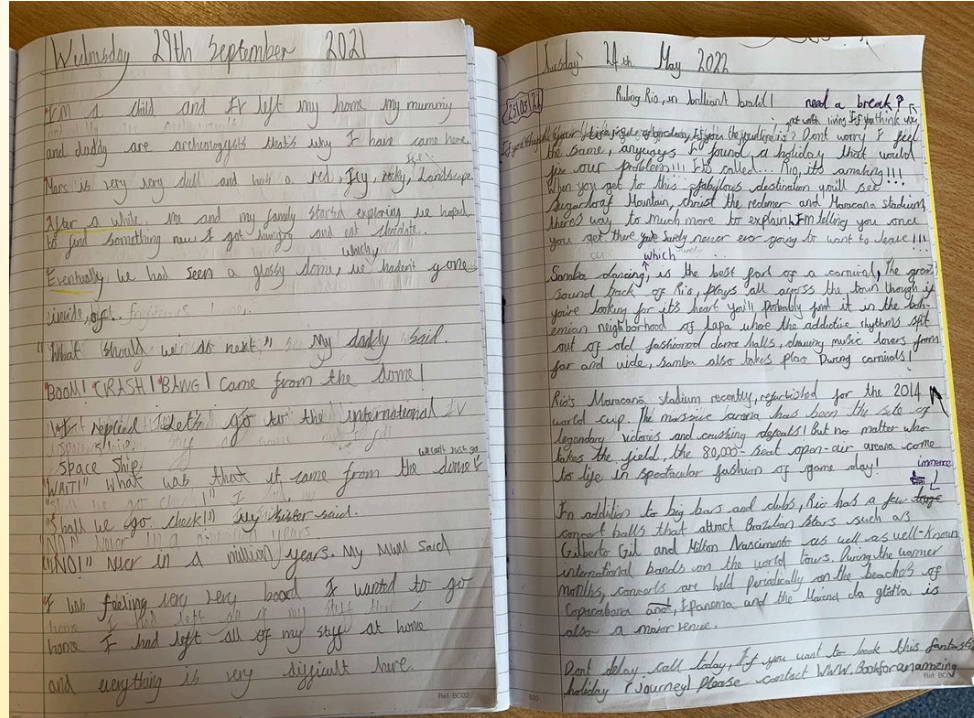 Wednesday 29th September 2021
I'm a child and I'v left my home my mummy
and daddy are archeologysts that's why I have came here.
Mars is very very dull and has a red, Icy, rocky, Landscape
After a while. Me and my family startid exploring we hoped
to find something new I got hungry and eat chocolate.
which,
Eventually we had seen a glossy dome, we hadent gone
inside, of.
"What should we do next," My daddy said.
"BOOM! CRASH! BANG! Came from the dome!
replied Let's go to the international
space ship.
we can't just go
"WAIT!" what was that it came from the dome
"Shall we go check!" my sister said.
"NO!" never in a million years. My Mum said
I was feeling very very board I wanted to go
home I had left all of my stuff at home
and everything is very difficult here.
Tuesday 24th May 2022
Ruling Rio, in brilliant brazil! need a break?
not worth living If you think you
If you think your life is Dont worry I feel
the same, anyways I found a holiday that would
fix our problem!!! It's called... Rio, its amaking!!!
When you got to this fabulous destination you'll see
Sugarloaf Mountain, christ the redemer and Maracana stadium
there's way to much more to explain, I'm telling you once
you get there you surely never ever going to want to leave!!!
which
Samba dancing, is the best part of a carnival, The great
sound back of Rio, plays all across the town though if
you're looking for it's heart you'll probably find it in the boh-
emian neighborhood of Lapa whoe the addictive rhythms spit
out of old fashioned dance halls, drawing music lovers from
far and wide, Samba also takes place During carnivals!
Rio's Maracana stadium recently, refurbished for the 2014
world cup. The massive barena has been the site of
legendary victoris and crushing defeats! But no matter who
takes the field, the 80,000-seat open-air areana come
to life in spectacular fashion of game day!
immence
In addition to big bars and clubs, Rio has a few
concert halls that attract Brazilian stars such as
Gilberto Gil and Milton Nascimento as well as well-known
international bands on the world tours. During the warmer
months, concerts are held periodically on the beaches of
Copacabana and, Ipanema, and the Marina da glória is
also a major venue.
Dont delay call today, If you want to book this fantastic
holiday (Journey) Please contact WWW.Bookforanameing
Ref: BC02
Ref: BC02